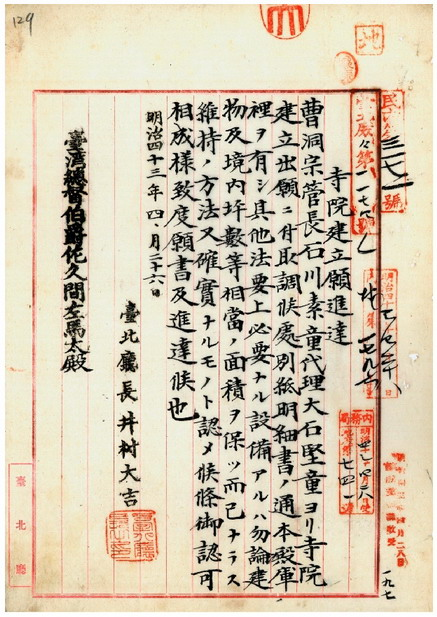 129
地
寺院建立願進達
曹洞宗管長石川素童代理大石堅童ヨリ寺院
建立出願ニ付取調候處別紙明細書ノ通本殿庫
裡ヲ有シ其他法要上必要ナル設備アルハ勿論建
物及境内坪數等相當ノ面積ヲ保ツ而已ナラス
維持ノ方法又確實ナルモノト認メ候條御認可
相成樣致度願書及進達候也
明治四十三年四月二十六日
臺北廳長井村大吉
臺灣總督伯爵佐久間左馬太殿
臺北廳